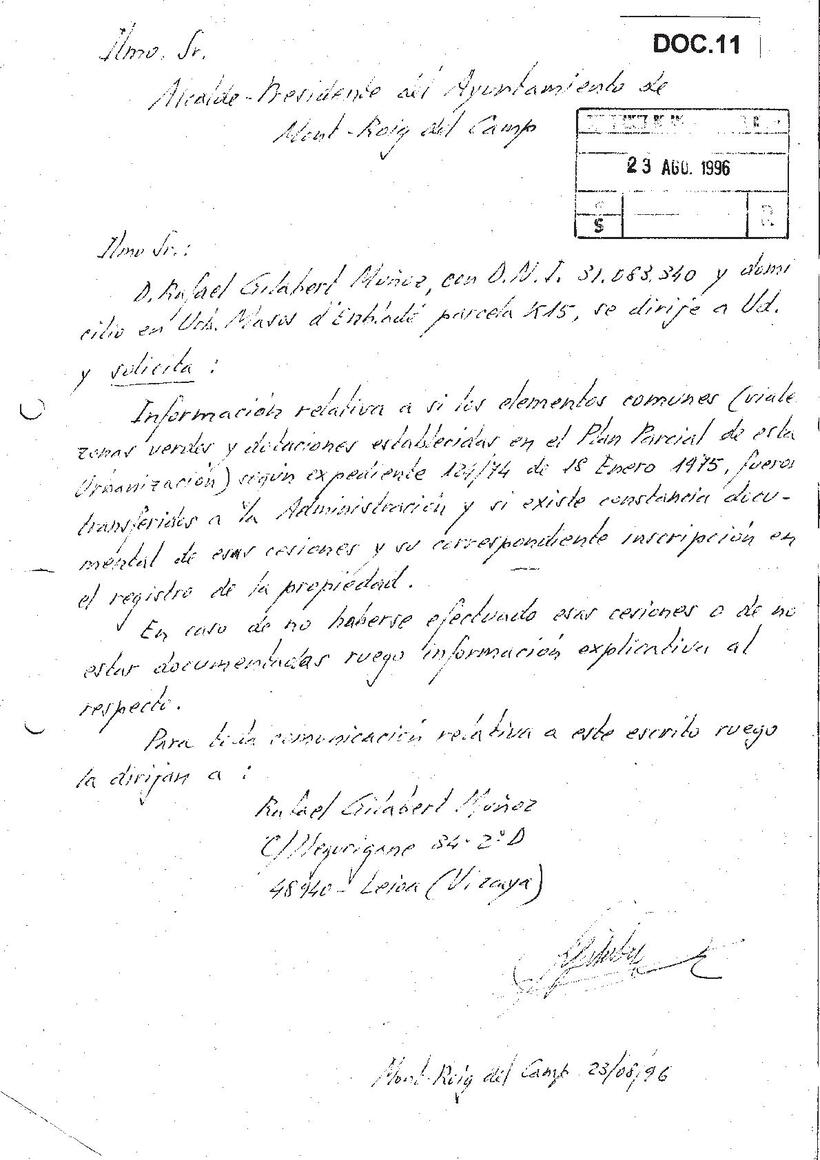 DOC.11
Ilmo. Sr.
Alcalde-Presidente del Ayuntamiento de
Mont-Roig del Camp
23 AGO. 1996
S
Ilmo Sr.:
D. Rafael Gilabert Muñoz, con D.N.I. 31.083.340 y domi
cilio en Urb. Masos d'En Bladé parcela K15, se dirije a Ud.
y solicita :
Información relativa a si los elementos comunes (viale
zonas verdes y dotaciones establecidas en el Plan Parcial de esta
Urbanización) según expediente 124/74 de 18 Enero 1975, fueron
transferidos a la Administración y si existe constancia docu-
mental de esas cesiones y su correspondiente inscripción en
el registro de la propiedad.
En caso de no haberse efectuado esas cesiones o de no
estar documentadas ruego información explicativa al
respecto.
Para toda comunicación relativa a este escrito ruego
la dirijan a :
Rafael Gilabert Muñoz
C/ 34-2º D
48940 - Leioa (Vizcaya)
Mont-Roig del Camp 23/08/96